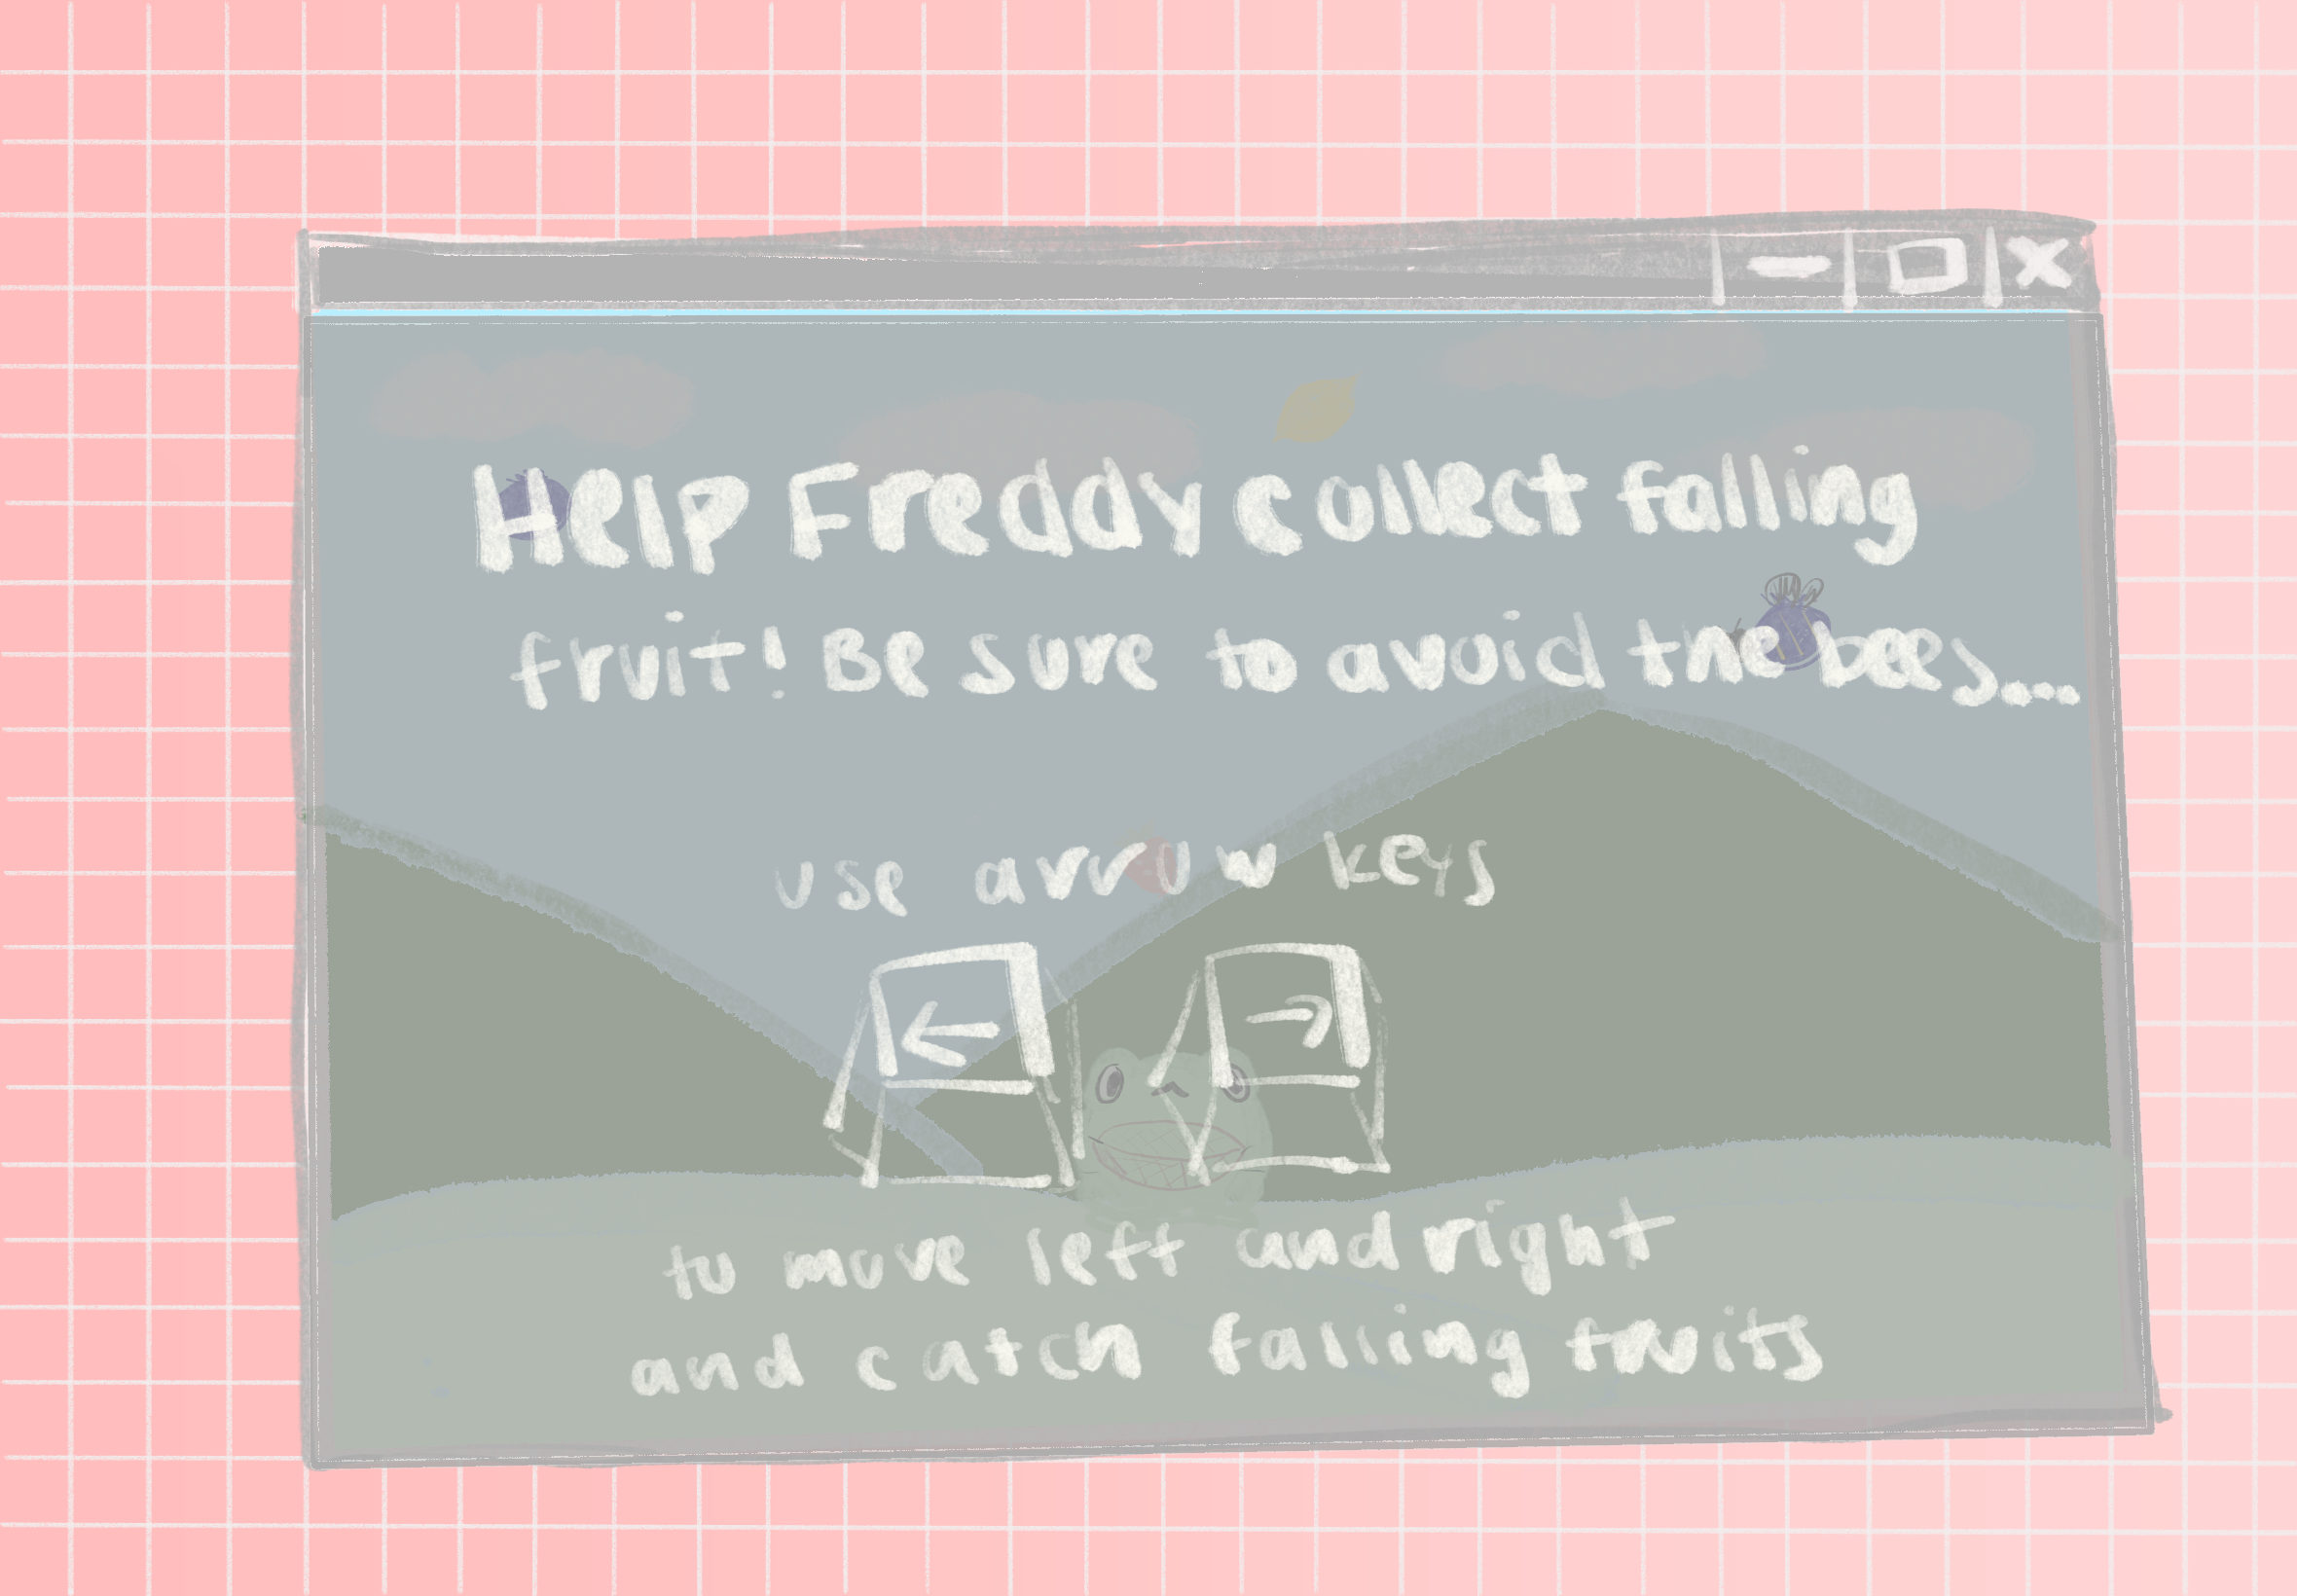 Help Freddy collect falling
fruit! Be sure to avoid the bees...
use arrow keys
← →
to move left and right
and catch falling fruits